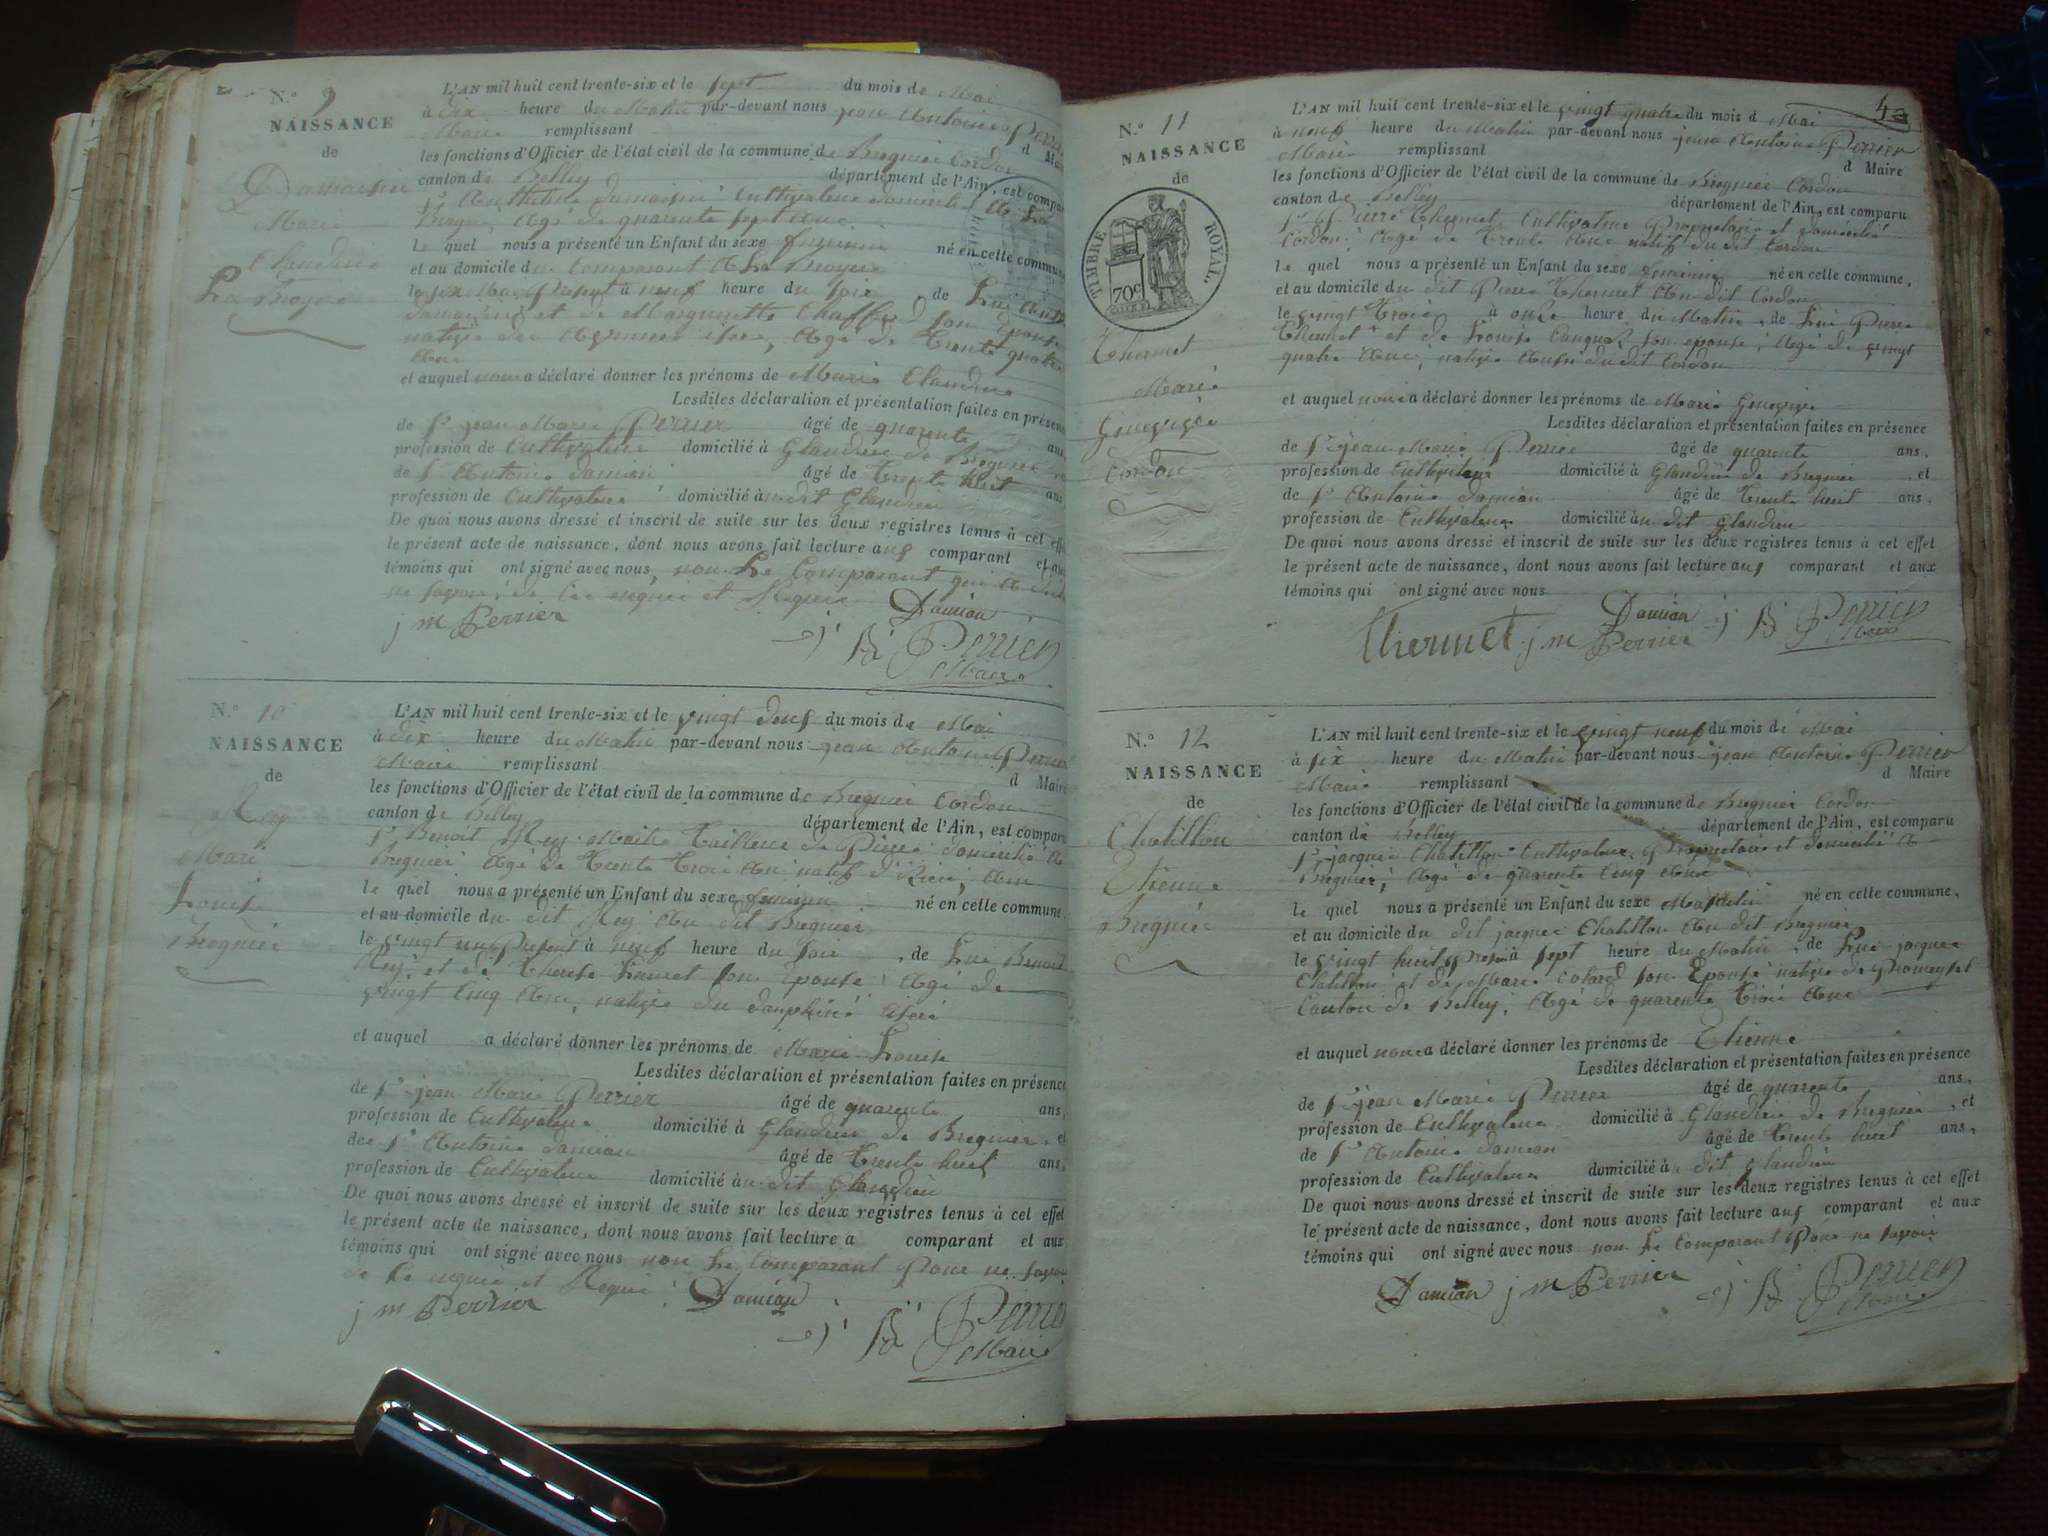 N.° 9
NAISSANCE
de
Marie
Claudine
L'AN mil huit cent trente-six et le sept du mois de Mai
à dix heure du Matin par-devant nous jean Antoine Perrier
Maire remplissant d Maire
les fonctions d'Officier de l'état civil de la commune de Bregnier Cordon
canton de Belley département de l'Ain, est comparu
cultivateur domicilié à La
Bruyere, Agé de quarante sept ans
le quel nous a présenté un Enfant du sexe feminin né en cette commune
et au domicile du comparant à La Bruyere
le six Mai Present à neuf heure du soir de Lui
et de Margueritte son Epouse
native des Avenieres isere, Agé de trente quatre
Ans
et auquel nous a déclaré donner les prénoms de Marie Claudine
Lesdites déclaration et présentation faites en présence
de Sr jean Marie Perrier âgé de quarante ans
profession de Cultivateur domicilié à Glandieu de Bregnier et
de Sr Antoine Damian âgé de trente huit ans
profession de Cultivateur domicilié au dit Glandieu
De quoi nous avons dressé et inscrit de suite sur les deux registres tenus à cet effet
le présent acte de naissance, dont nous avons fait lecture aux comparant et aux
témoins qui ont signé avec nous, non Le Comparant qui a dit
ne savoir de ce enquis et Requis Damian
j m Perrier
j A Perrier
Maire
N.° 10
NAISSANCE
de
Rey
Marie
Louise
Bregnier
L'AN mil huit cent trente-six et le vingt deux du mois de Mai
à dix heure du Matin par-devant nous jean Antoine Perrier
Maire remplissant d Maire
les fonctions d'Officier de l'état civil de la commune de Bregnier Cordon
canton de Belley département de l'Ain, est comparu
Sr Benoit Rey Maitre Tailleur de Pierre domicilié à
Bregnier Agé de trente trois Ans natif
le quel nous a présenté un Enfant du sexe feminin né en cette commune,
et au domicile du dit Rey Au dit Bregnier
le vingt un Present à neuf heure du soir, de Lui Benoit
Rey, et de Therese son épouse Agé de
vingt cinq Ans, native du dauphiné isere
et auquel a déclaré donner les prénoms de Marie Louise
Lesdites déclaration et présentation faites en présence
de Sr jean Marie Perrier âgé de quarante ans,
profession de Cultivateur domicilié à Glandieu de Bregnier, et
de Sr Antoine Damian âgé de trente huit ans,
profession de Cultivateur domicilié au dit Glandieu
De quoi nous avons dressé et inscrit de suite sur les deux registres tenus à cet effet
le présent acte de naissance, dont nous avons fait lecture à comparant et aux
témoins qui ont signé avec nous non Le Comparant Pour ne savoir
de ce enquis et Requis. Damian
j m Perrier
j A Perrier
Maire
N.° 11
NAISSANCE
de
TIMBRE ROYAL.
70c
Thermet
Marie
Genevieve
Cordon
L'AN mil huit cent trente-six et le vingt quatre du mois d Mai
à neuf heure du Matin par-devant nous jean Antoine Perrier
Maire remplissant d Maire
les fonctions d'Officier de l'état civil de la commune de Bregnier Cordon
canton de Belley département de l'Ain, est comparu
Sr Pierre Thermet Cultivateur Proprietaire et domicilié
Cordon Agé de trente Ans natif du dit Cordon
le quel nous a présenté un Enfant du sexe feminin né en cette commune,
et au domicile du dit Pierre Thermet Au dit Cordon
le vingt trois à onze heure du Matin, de Lui Pierre
Thermet et de Louise son epouse, Agé de vingt
quatre Ans, native Aussi du dit Cordon
et auquel nous a déclaré donner les prénoms de Marie Genevieve
Lesdites déclaration et présentation faites en présence
de Sr jean Marie Perrier âgé de quarante ans,
profession de Cultivateur domicilié à Glandieu de Bregnier, et
de Sr Antoine Damian âgé de trente huit ans,
profession de Cultivateur domicilié au dit Glandieu
De quoi nous avons dressé et inscrit de suite sur les deux registres tenus à cet effet
le présent acte de naissance, dont nous avons fait lecture aux comparant et aux
témoins qui ont signé avec nous
Thermet j m Perrier Damian j A Perrier
Maire
N.° 12
NAISSANCE
de
Chatillon
Etienne
Bregnier
L'AN mil huit cent trente-six et le vingt neuf du mois de Mai
à six heure du Matin par-devant nous jean Antoine Perrier
Maire remplissant d Maire
les fonctions d'Officier de l'état civil de la commune de Bregnier Cordon
canton de Belley département de l'Ain, est comparu
Sr jacques Chatillon Cultivateur Proprietaire et domicilié à
Bregnier, Agé de quarante cinq Ans
le quel nous a présenté un Enfant du sexe Masculin né en cette commune,
et au domicile du dit jacques Chatillon Au dit Bregnier
le vingt huit Present à sept heure du Matin, de Lui jacques
Chatillon et de Marie Colard son Epouse native de
Canton de Belley, Agé de quarante trois Ans
et auquel nous a déclaré donner les prénoms de Etienne
Lesdites déclaration et présentation faites en présence
de Sr jean Marie Perrier âgé de quarante ans,
profession de Cultivateur domicilié à Glandieu de Bregnier, et
de Sr Antoine Damian âgé de trente huit ans,
profession de Cultivateur domicilié à dit Glandieu
De quoi nous avons dressé et inscrit de suite sur les deux registres tenus à cet effet
le présent acte de naissance, dont nous avons fait lecture aux comparant et aux
témoins qui ont signé avec nous non Le Comparant Pour ne savoir
Damian j m Perrier j A Perrier
Maire